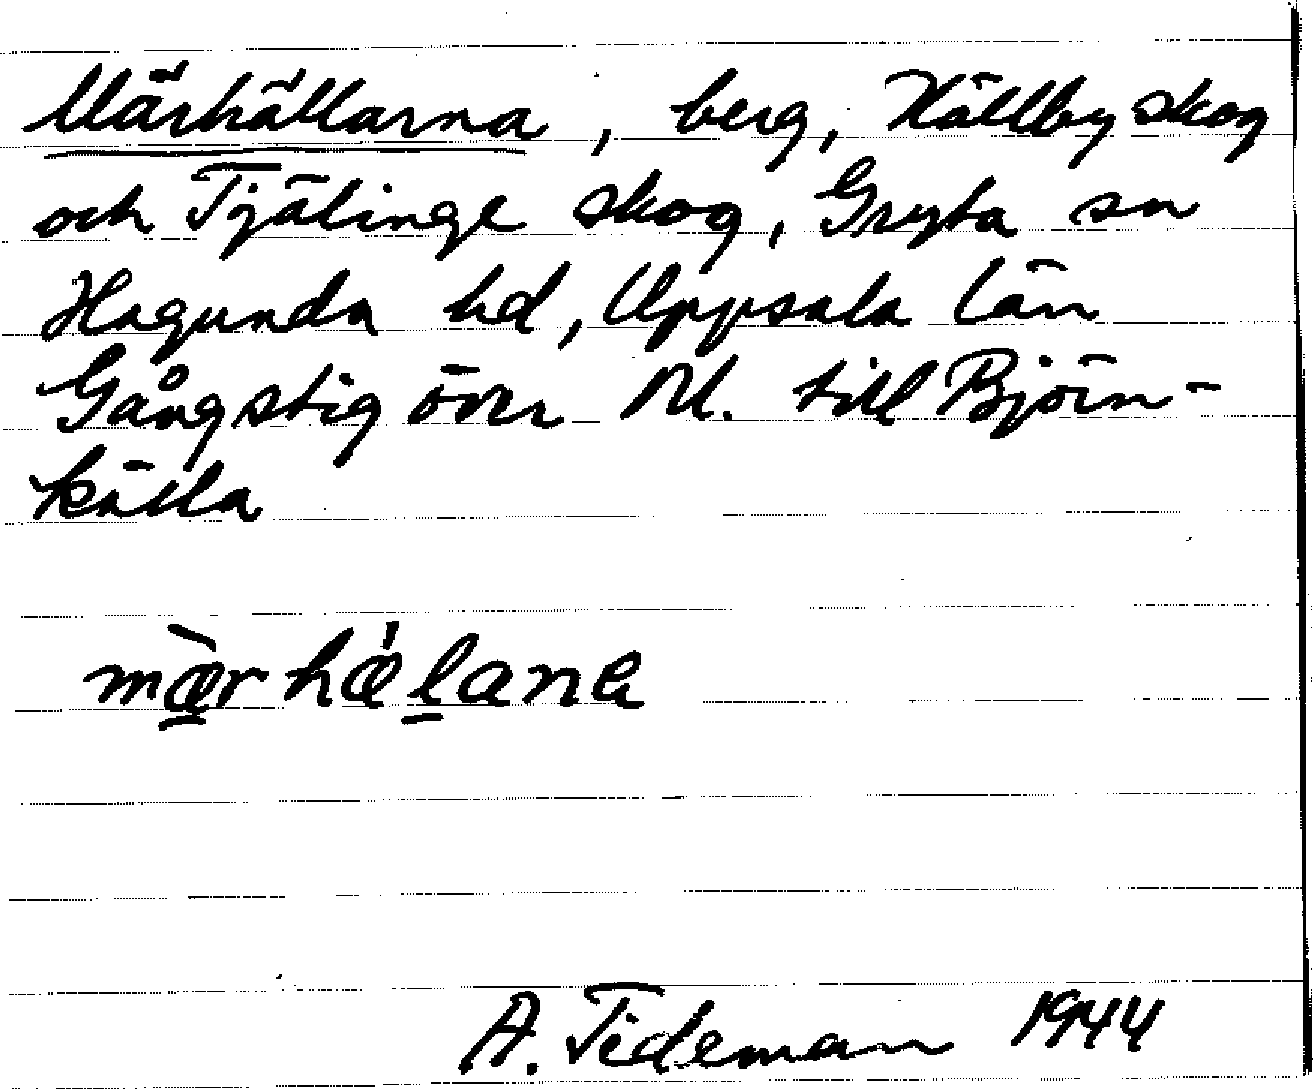 Märhällarna, berg, Hällby skog
och Tjälinge skog, Gryta sn
Hagunda hd, Uppsala län
Gångstig över M. till Björn-
källa
mæ̀r hǽlana
A. Tideman 1944